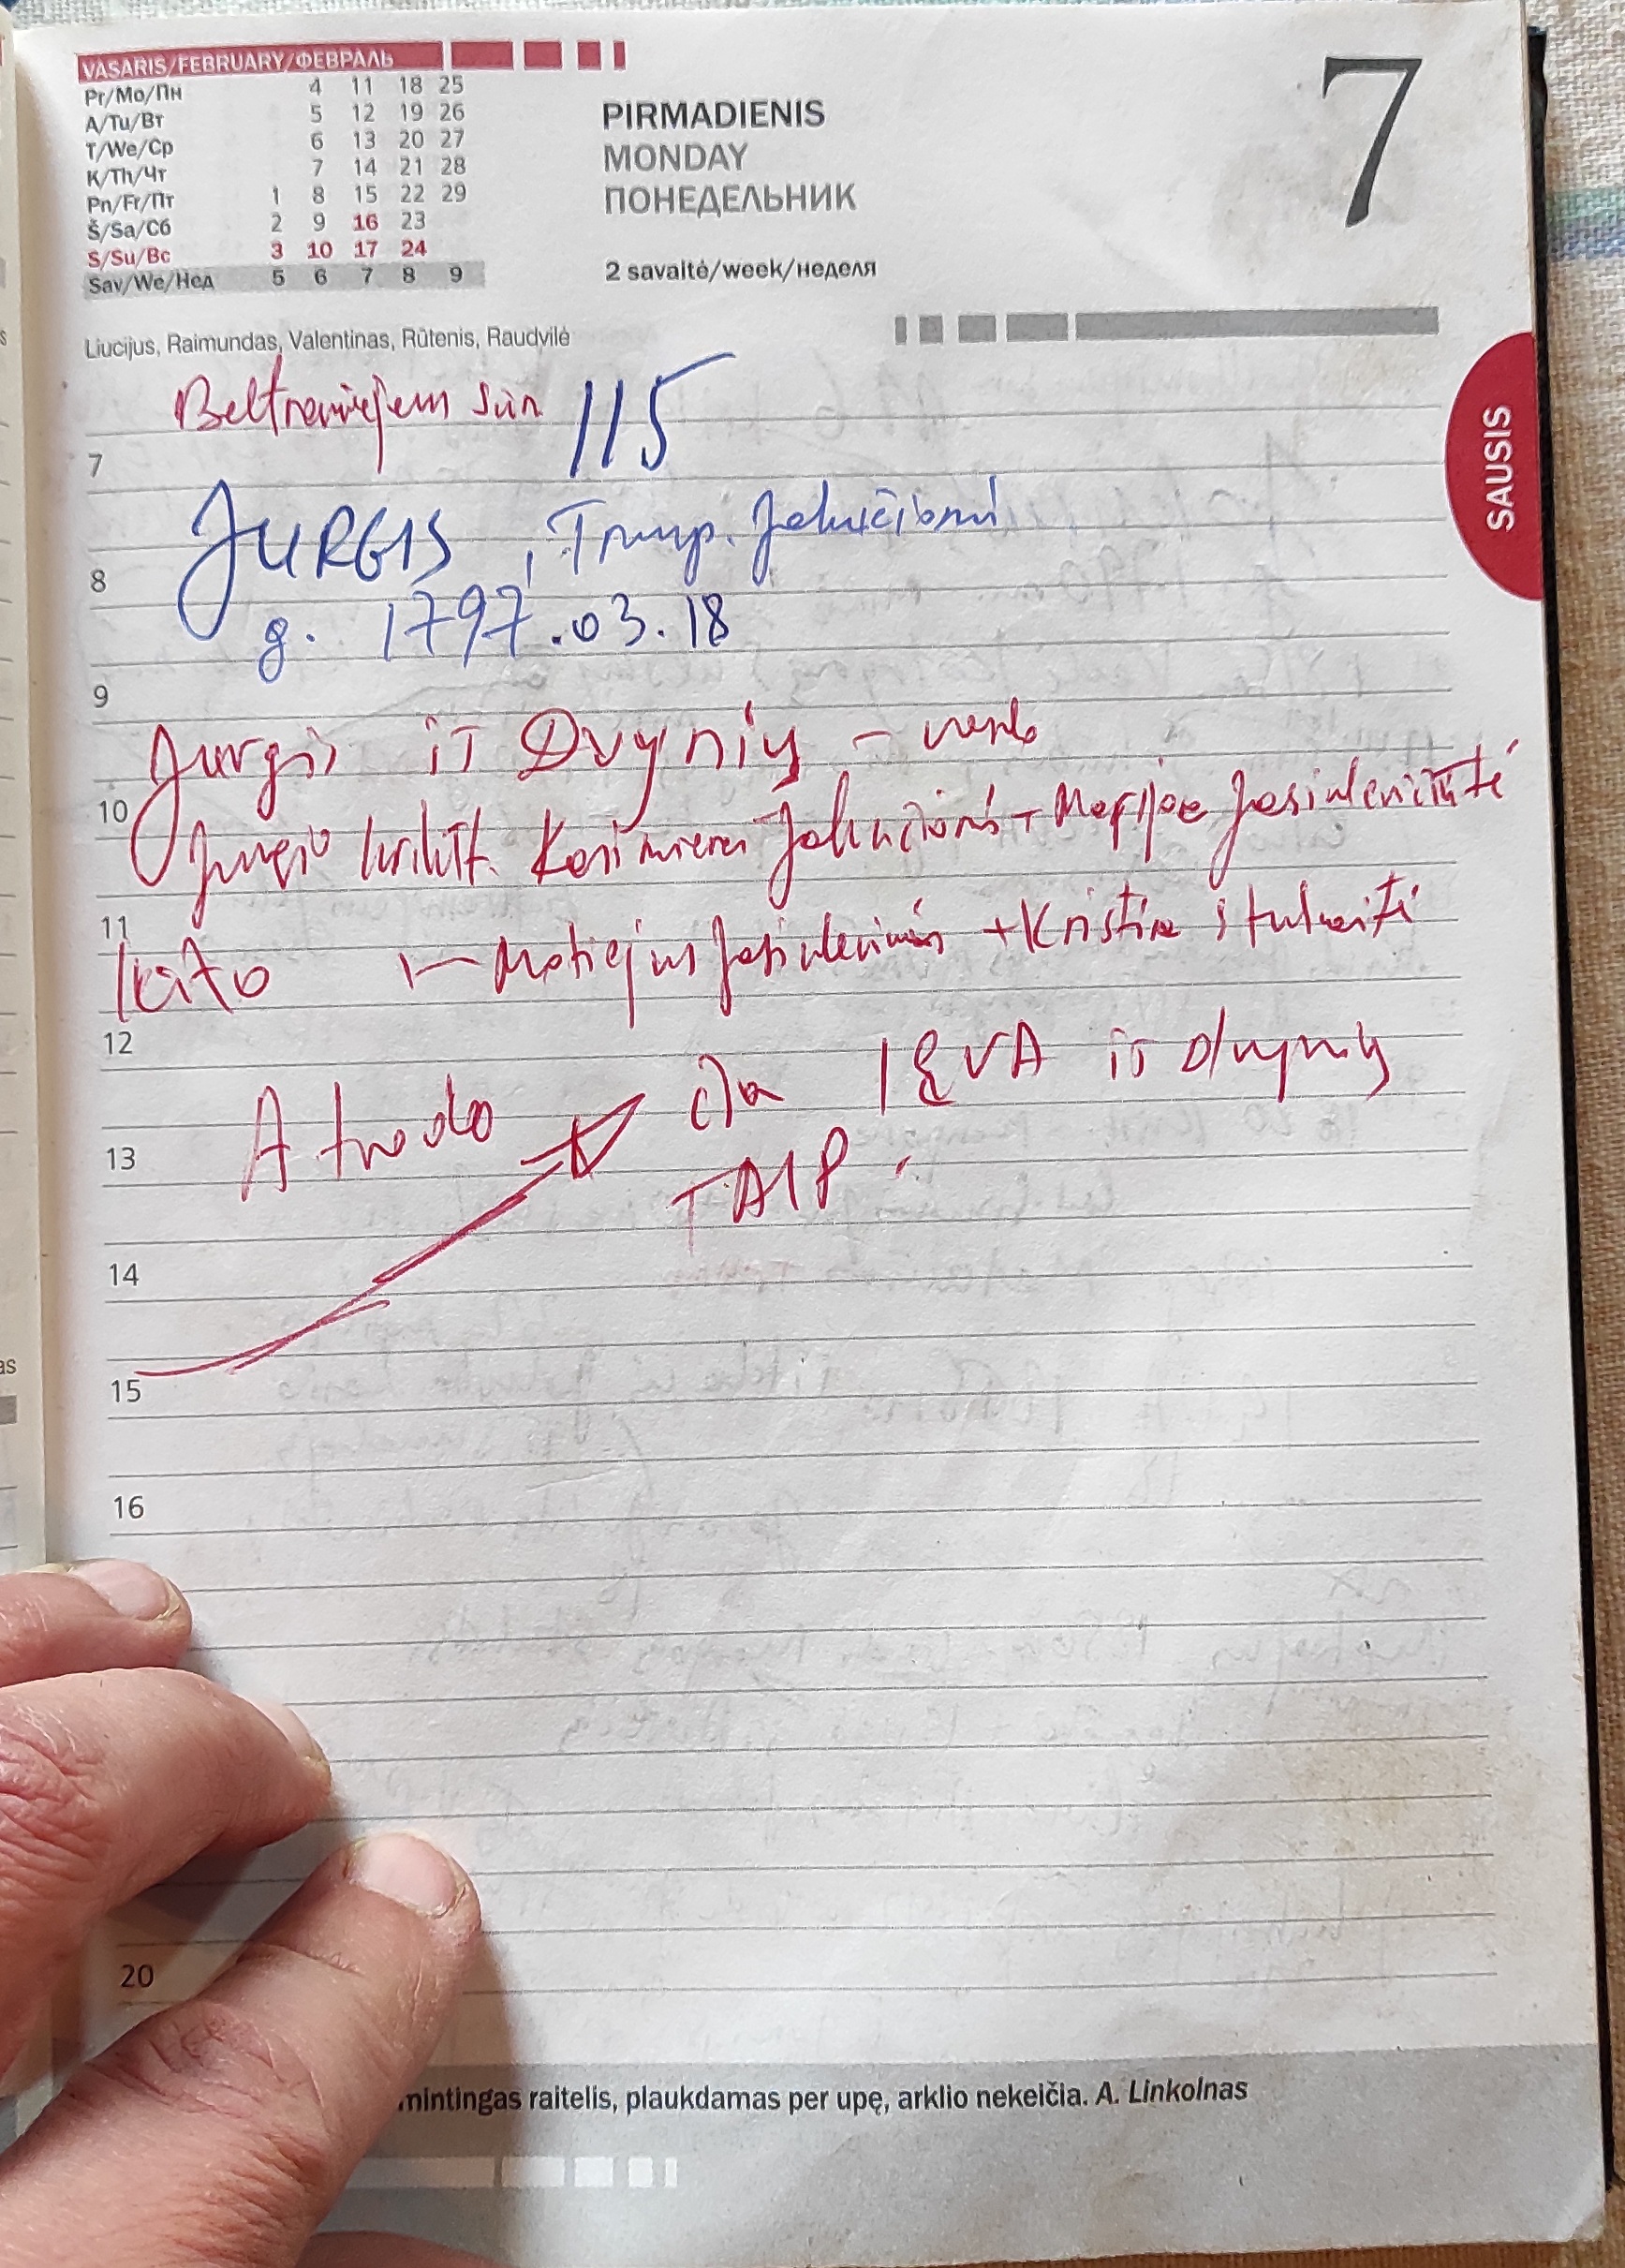 VASARIS/FEBRUARY/ФЕВРАЛЬ
Pr/Mo/Пн 4 11 18 25
A/Tu/Вт 5 12 19 26
T/We/Ср 6 13 20 27
K/Th/Чт 7 14 21 28
Pn/Fr/Пт 1 8 15 22 29
Š/Sa/Сб 2 9 16 23
S/Su/Вс 3 10 17 24
Sav/We/Нед 5 6 7 8 9
PIRMADIENIS
MONDAY
ПОНЕДЕЛЬНИК
2 savaitė/week/неделя
7
Liucijus, Raimundas, Valentinas, Rūtenis, Raudvilė
SAUSIS
115
7
JURGIS
8
g. 1797.03.18
9
Jurgis iš Dvynių –
10
Jurgio krikšt. +
11
kito Motiejus + Kristina
12
Atrodo čia IEVA iš dvynių
13
TAIP
14
15
16
20
mintingas raitelis, plaukdamas per upę, arklio nekeičia. A. Linkolnas